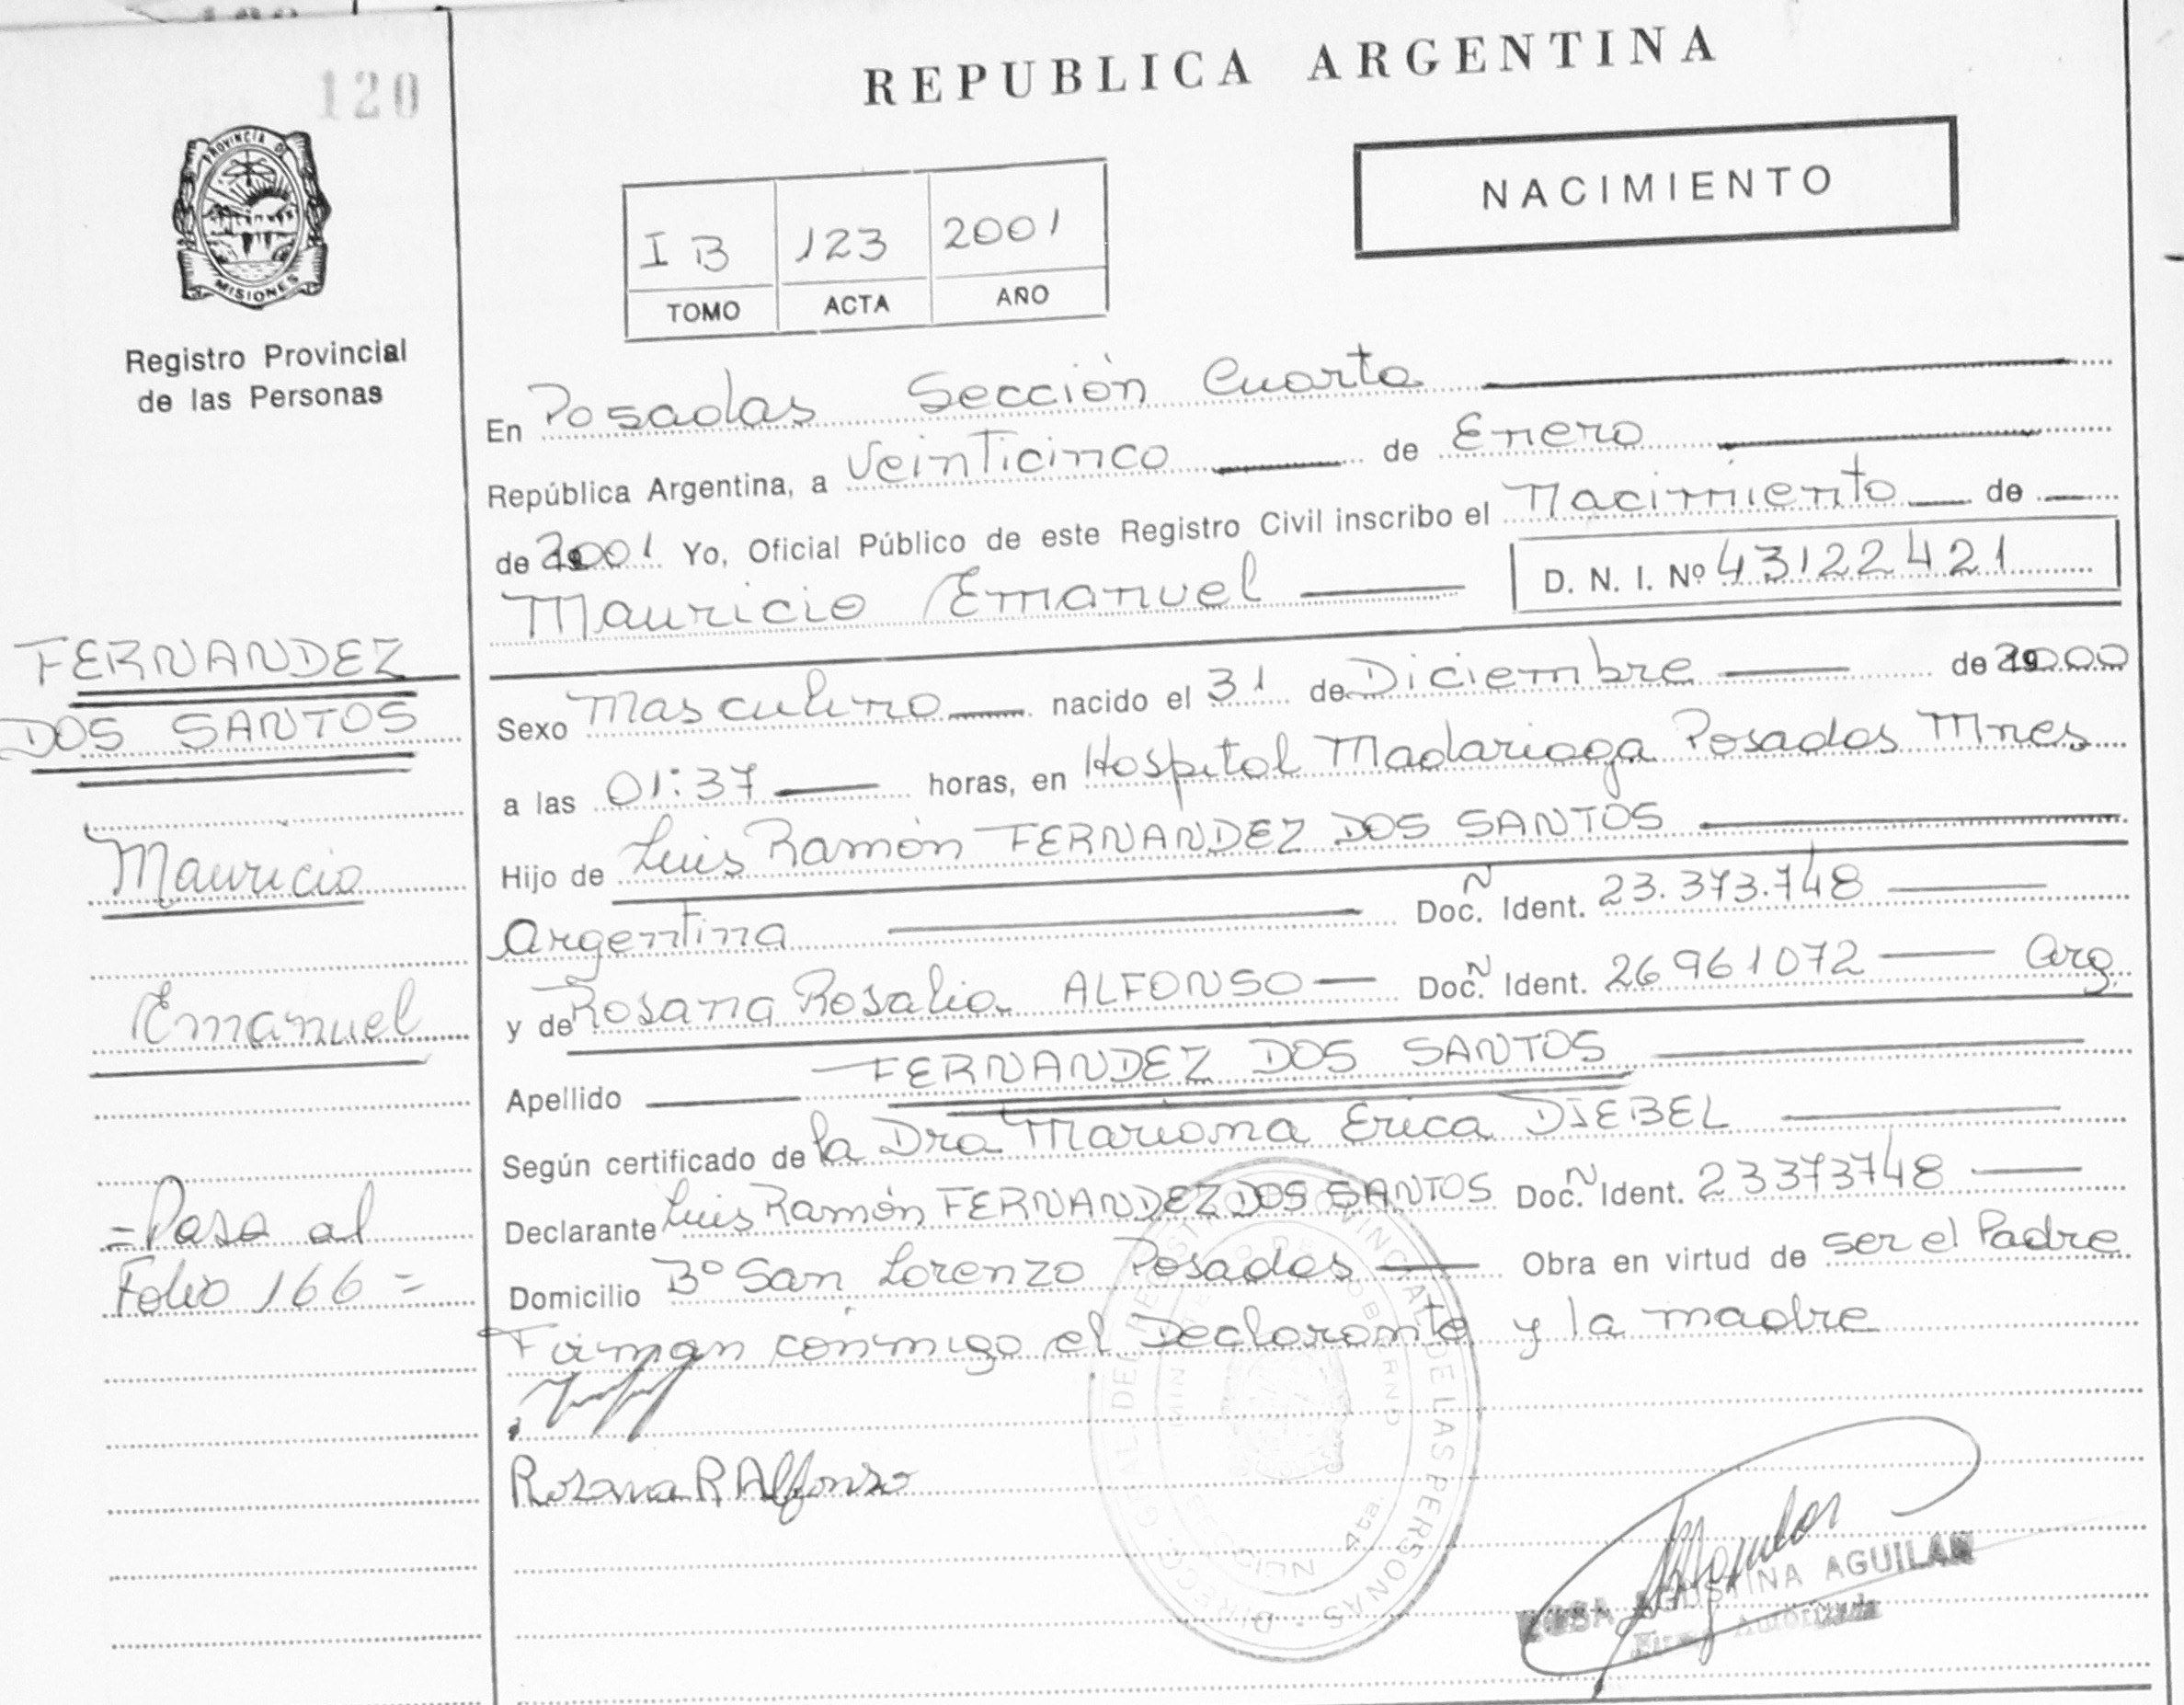 120
REPUBLICA ARGENTINA
PROVINCIA D
MISIONES
Registro Provincial
de las Personas
NACIMIENTO
I B 123 2001
TOMO ACTA AÑO
En Posadas Sección Cuarta
República Argentina, a Veinticinco de Enero
de 2001 Yo, Oficial Público de este Registro Civil inscribo el Nacimiento de
Mauricio Emanuel D. N. I. Nº 43122421
FERNANDEZ
DOS SANTOS
Mauricio
Emanuel
=Pasa al
Folio 166=
Sexo Masculino nacido el 31 de Diciembre de 2000
a las 01:37 horas, en Hospital Madariaga Posadas Mnes
Hijo de Luis Ramón FERNANDEZ DOS SANTOS
Argentina Doc. N Ident. 23.373.748
y de Rosana Rosalia ALFONSO Doc. N Ident. 26961072 Arg.
Apellido FERNANDEZ DOS SANTOS
Según certificado de la Dra Mariana Erica DIEBEL
Declarante Luis Ramón FERNANDEZ DOS SANTOS Doc. N Ident. 23373748
Domicilio Bº San Lorenzo Posadas Obra en virtud de ser el Padre
Firman conmigo el Declarante y la madre
Rosana R Alfonso
DE LAS PERSONAS
4ta.
ROSA AGUSTINA AGUILAR
Firma Autorizada